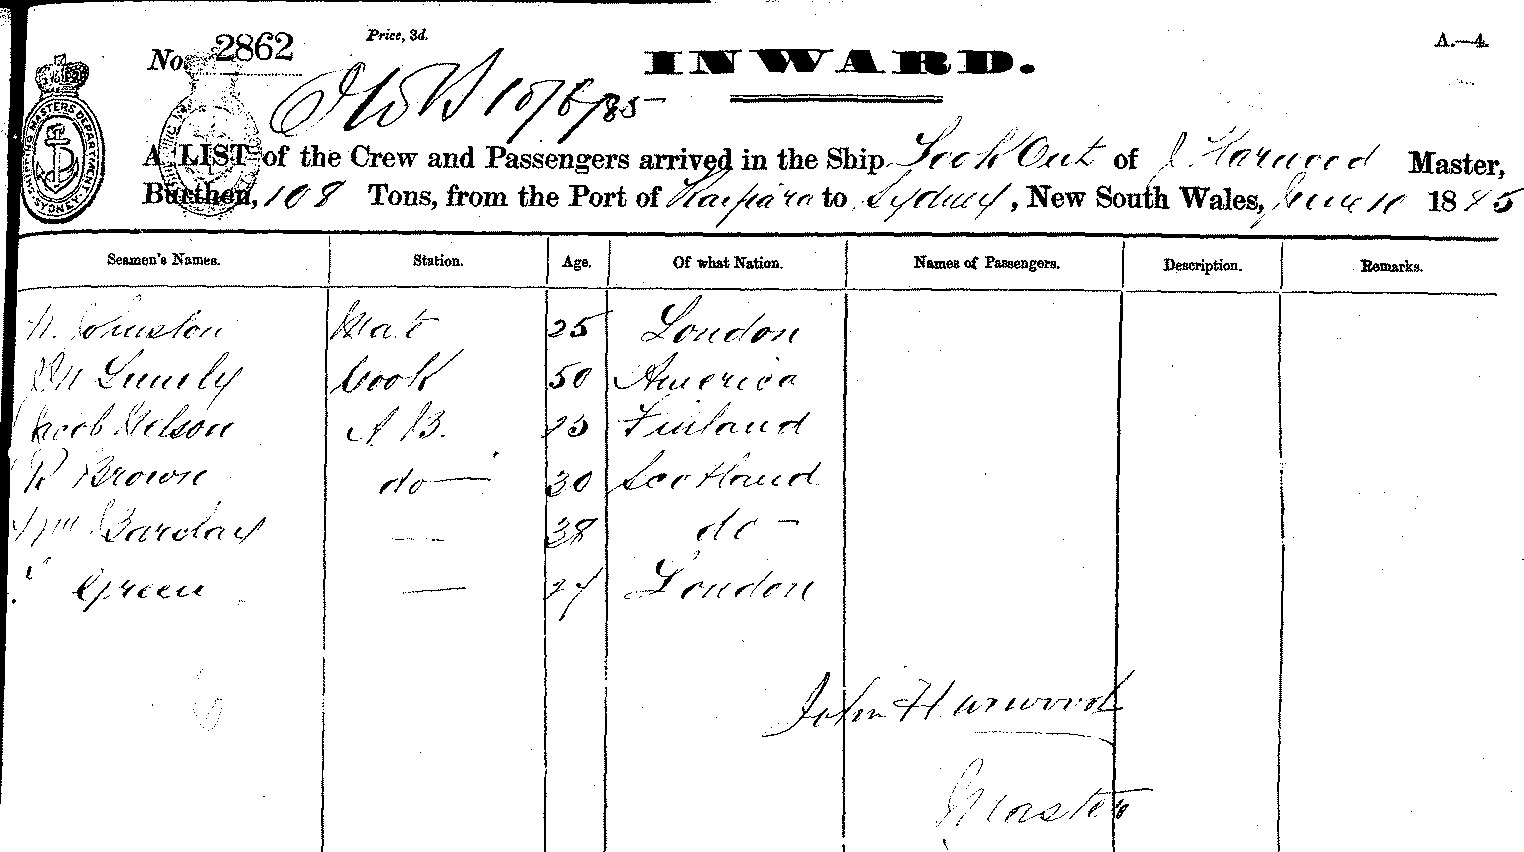 No. 2862 Price, 3d. INWARD. A.—4.
10/6/85
A LIST of the Crew and Passengers arrived in the Ship Look Out of J Harwood Master,
Burthen, 108 Tons, from the Port of Kaipara to Sydney, New South Wales, June 10 1885
Seamen's Names. Station. Age. Of what Nation. Names of Passengers. Description. Remarks.
Johnston Mate 25 London
Lumly Cook 50 America
Jacob Nelson A B. 25 Finland
R Brown do — 30 Scotland
Wm Barclay — 38 do —
Green — 24 London
John Harwood
Master